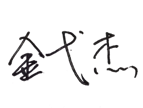 金弋杰